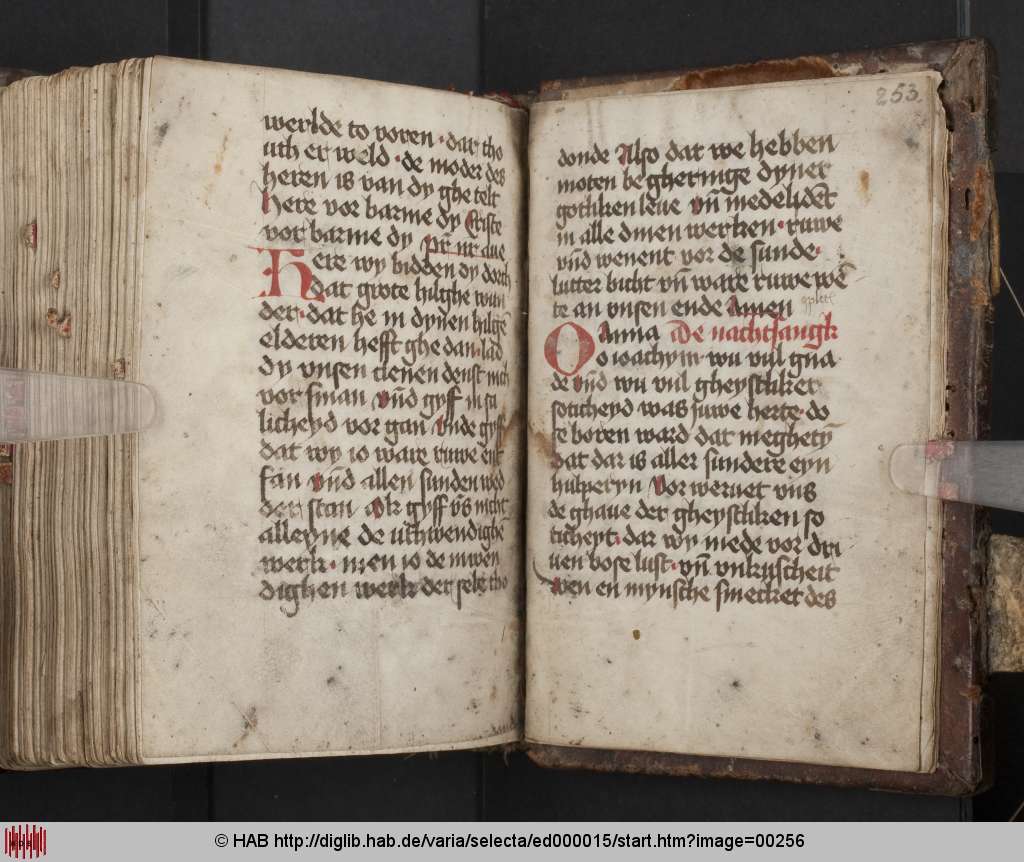 werlde to voren · dar tho
uth er weld · de moder des
heren is van dy ghe telt
here vor barme dy Criste
vor barme dy pr̄ nr aue
Here wy bidden dy dorch
dat grote hilghe wun
der · dat he in dynen hilgē
elderen hefft ghe dan · lad
dy vnsen clenen denst nich
vor sman vn̄d gyff in sa
licheyd vor gan vnde gyf
dat wy io ware ruwe ent
fan vn̄d allen sunden wed
der stan Ok gyff vs nicht
alleyne de uthwendighē
werk · men io de inwen
dighen werk der sele tho
253
donde Also dat we hebben
moten be gheringe dyner
gotliken leue vn̄ medelidēt
in alle dinen werken · ruwe
vn̄d wenent vor de sunde ·
lutter bicht vn̄ ware ruwe wē
te an vnsen ende Amen
O Anna De nachtsangk
o ioachym · wu vul gna
de vn̄d wu vul gheystliker
soticheyd was juwe herte · do
se boren ward dat meghetȳ
dat dar is aller sundere eyn
hulperyn Vor weruet vns
de ghaue der gheystliken so
ticheyt · dar wy mede vor dri
uen bose lust · vn̄ vnkuscheit
Wen en mynsche smecket des
© HAB http://diglib.hab.de/varia/selecta/ed000015/start.htm?image=00256